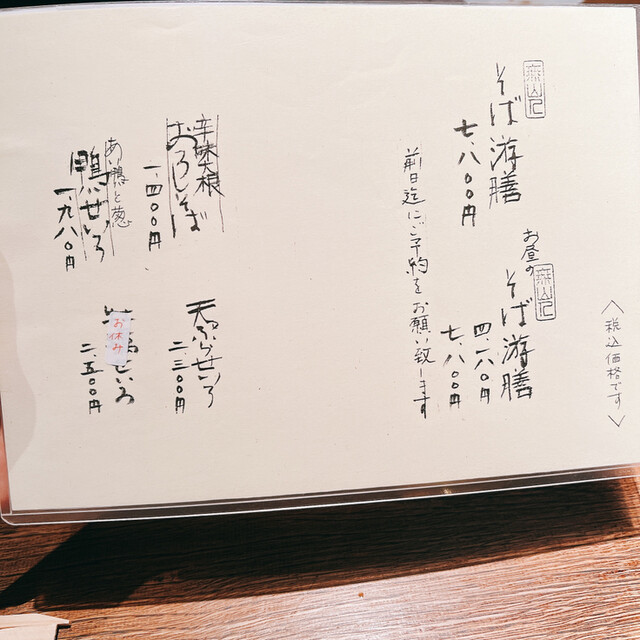 〈税込価格です〉
無山記
そば游膳
七、八〇〇円
お昼の
無山記
そば游膳
四、一八〇円
七、八〇〇円
前日迄にご予約をお願い致します
辛味大根
おろしそば
一、四〇〇円
天ぷらせいろ
二、三〇〇円
あい鴨と葱
鴨せいろ
一、九八〇円
お休み
せいろ
二、五〇〇円